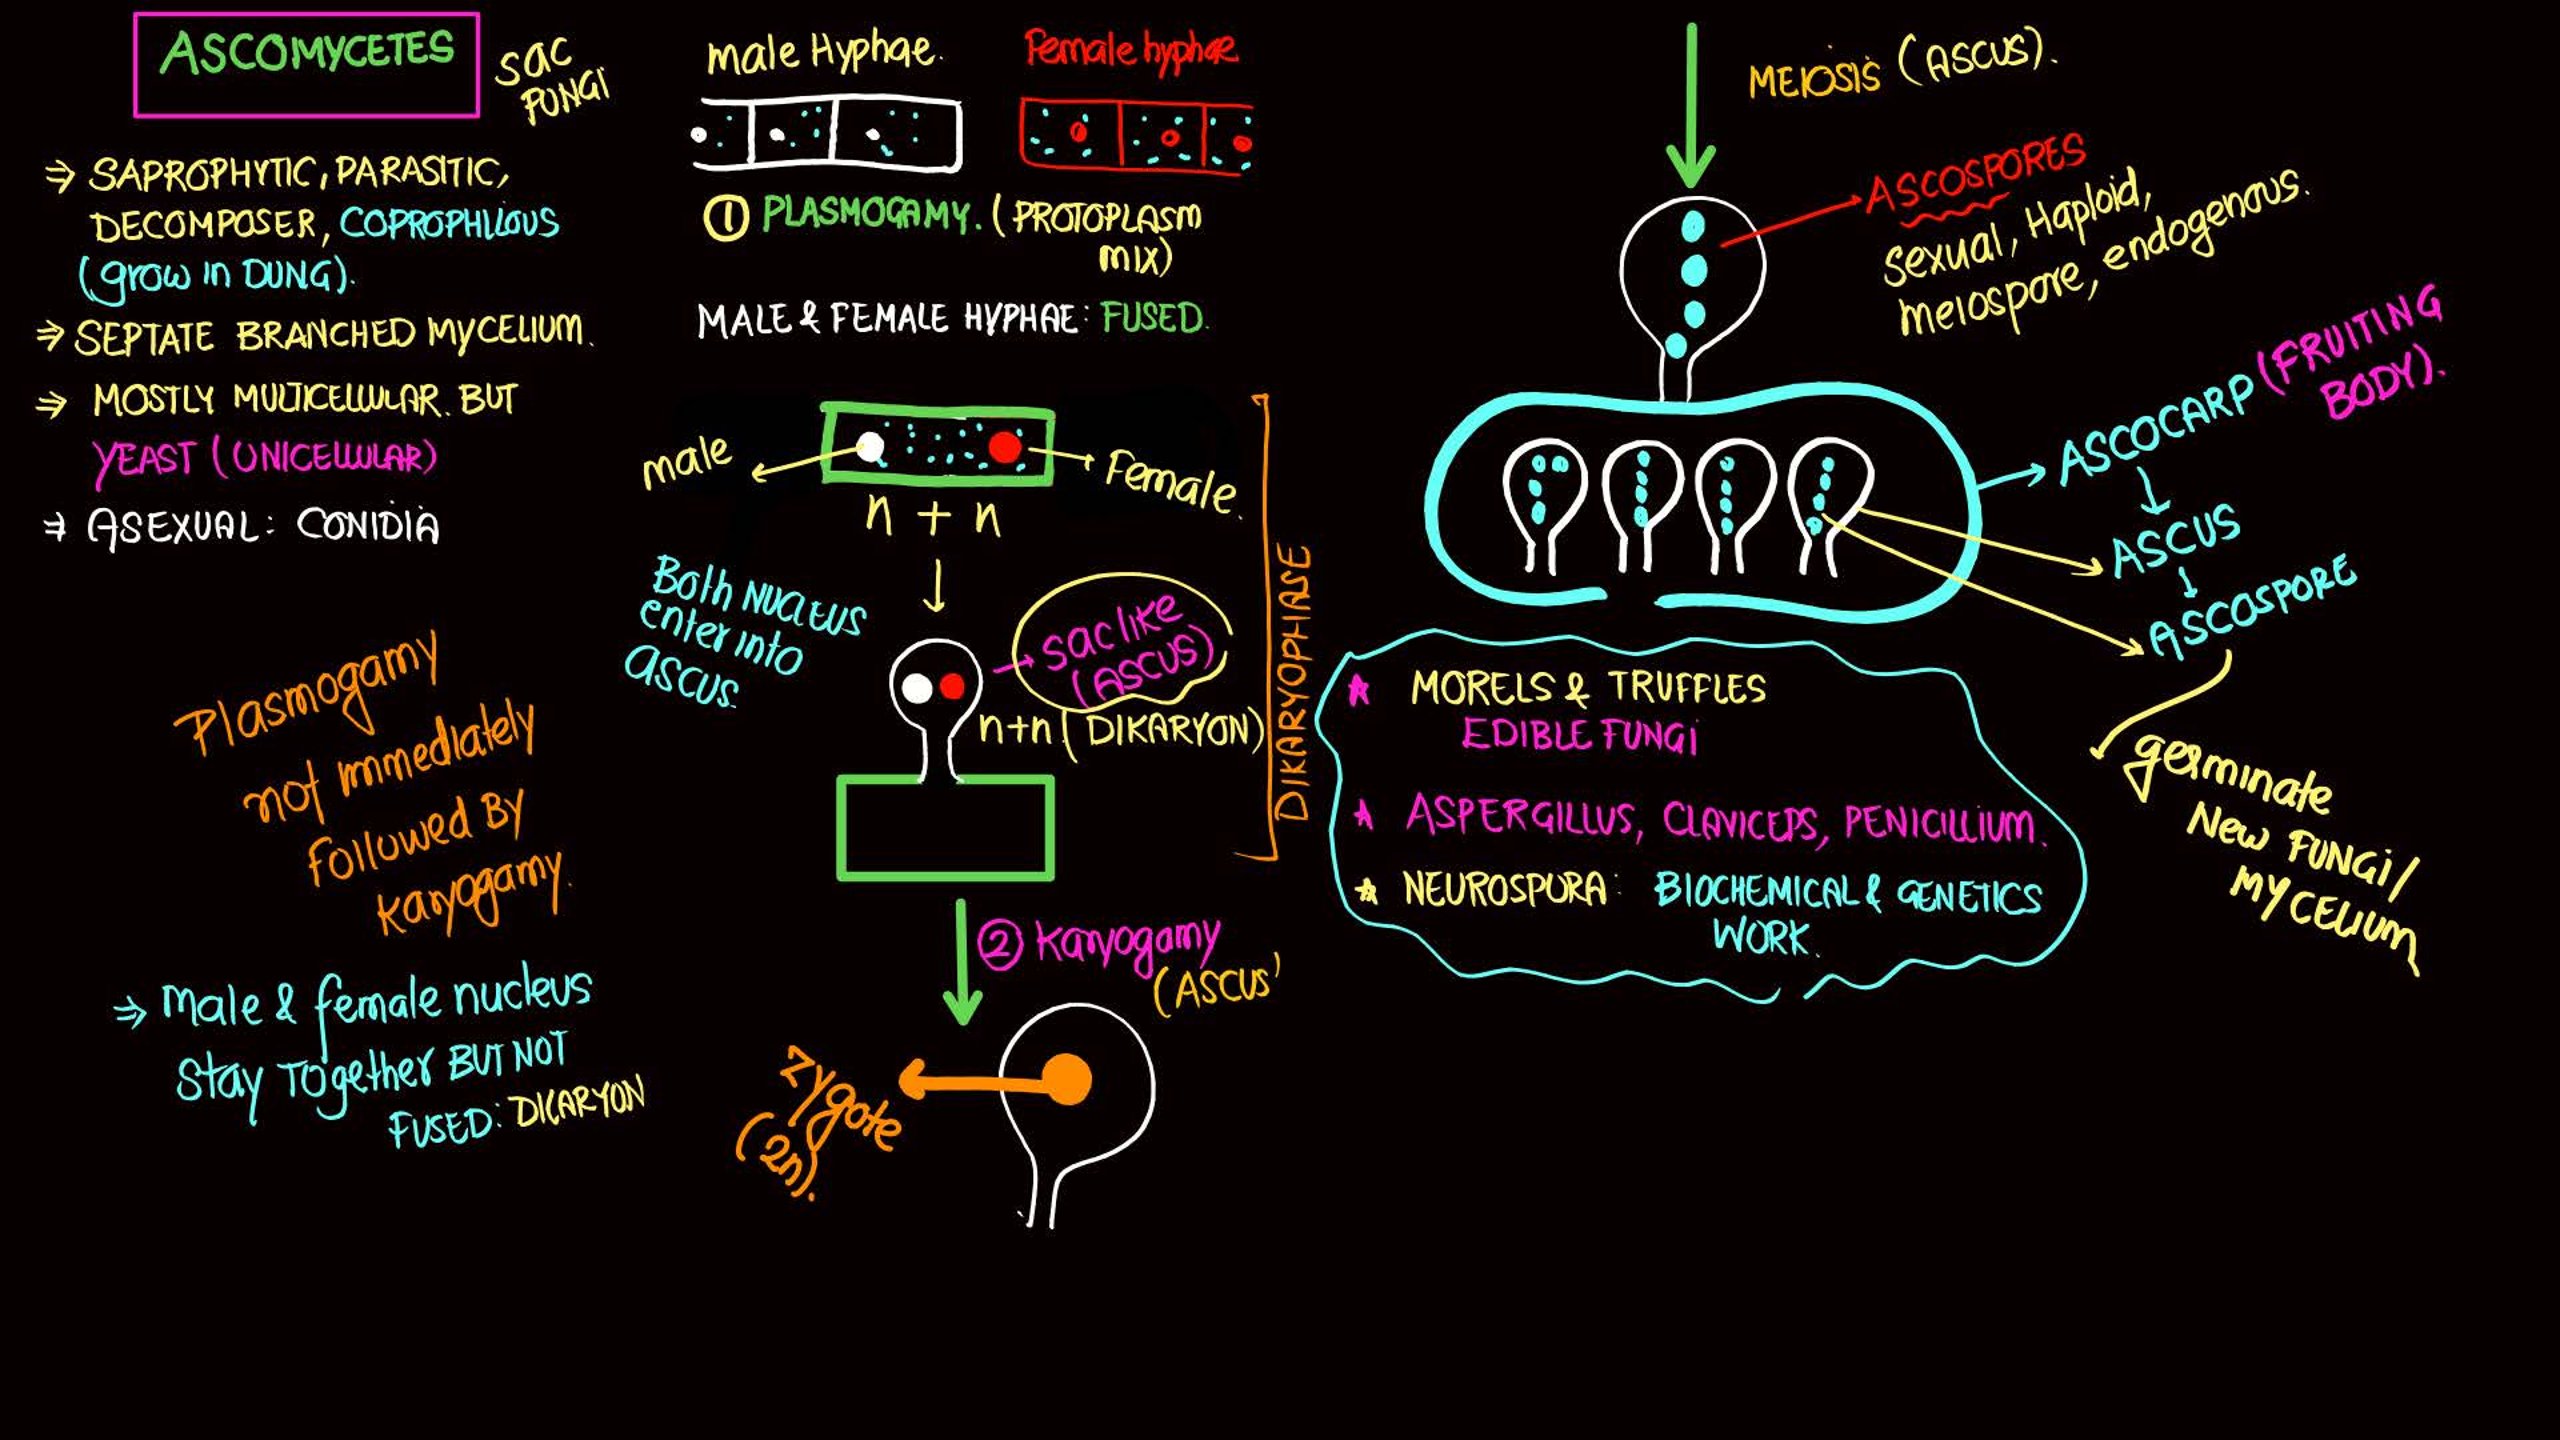 ASCOMYCETES
SAC
FUNGI
⇒ SAPROPHYTIC, PARASITIC,
DECOMPOSER, COPROPHILOUS
(grow in DUNG).
⇒ SEPTATE BRANCHED MYCELIUM.
⇒ MOSTLY MULTICELLULAR. BUT
YEAST (UNICELLULAR)
⇒ ASEXUAL: CONIDIA
Plasmogamy
not immediately
followed By
karyogamy.
⇒ Male & female nucleus
Stay Together BUT NOT
FUSED: DICARYON
male Hyphae.
Female hyphae
① PLASMOGAMY. (PROTOPLASM
MIX)
MALE & FEMALE HYPHAE: FUSED.
male
Female.
n + n
Both NUCLEUS
enter into
ASCUS.
sac like
(ASCUS)
n+n (DIKARYON)
DIKARYOPHASE
② Karyogamy
(ASCUS'
Zygote
(2n).
MEIOSIS (ASCUS).
ASCOSPORES
sexual, Haploid,
meiospore, endogenous.
ASCOCARP (FRUITING
BODY).
ASCUS
ASCOSPORE
germinate
New FUNGI/
MYCELIUM
MORELS & TRUFFLES
EDIBLE FUNGI
ASPERGILLUS, CLAVICEPS, PENICILLIUM.
NEUROSPURA: BIOCHEMICAL & GENETICS
WORK.